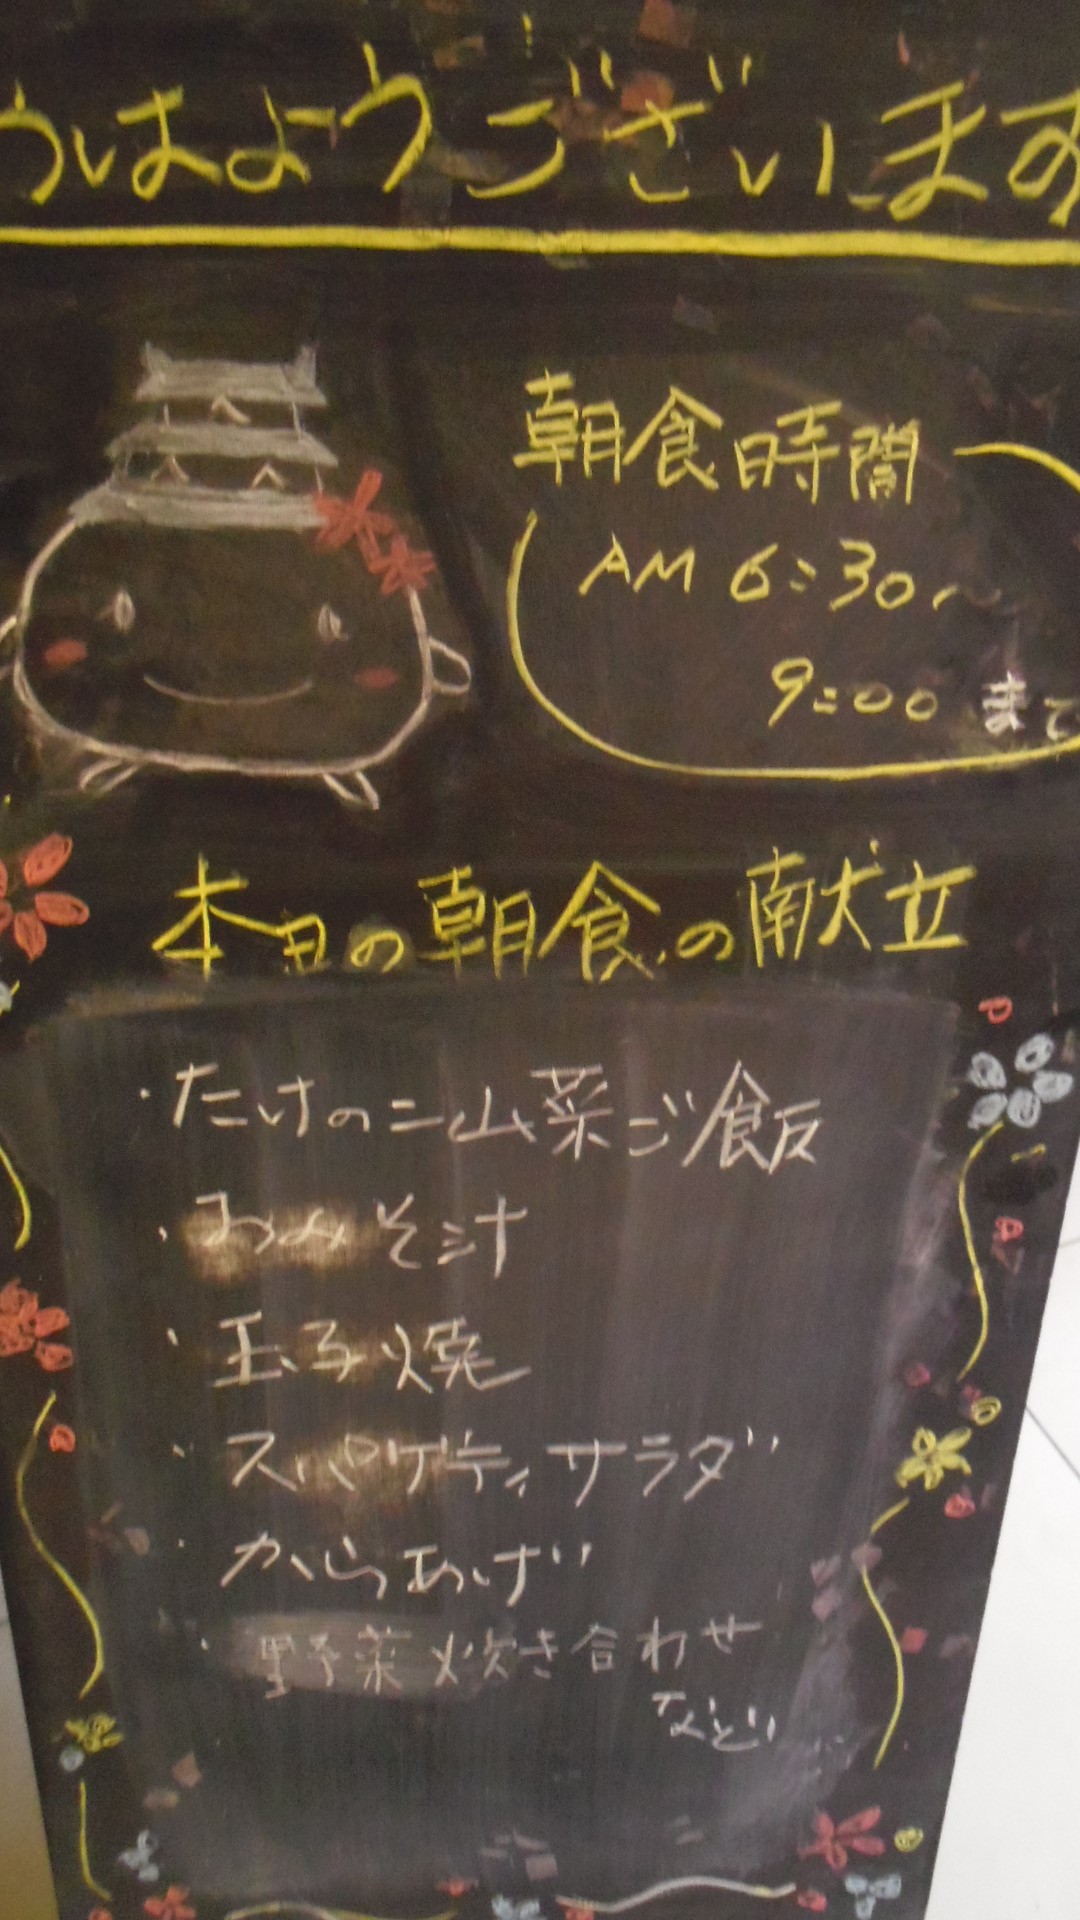 おはようございます
朝食時間
AM 6:30〜
9:00 まで
本日の朝食の献立
・たけのこ山菜ご飯
・おみそ汁
・玉子焼
・スパゲティサラダ
・からあげ
・野菜炊き合わせ
など